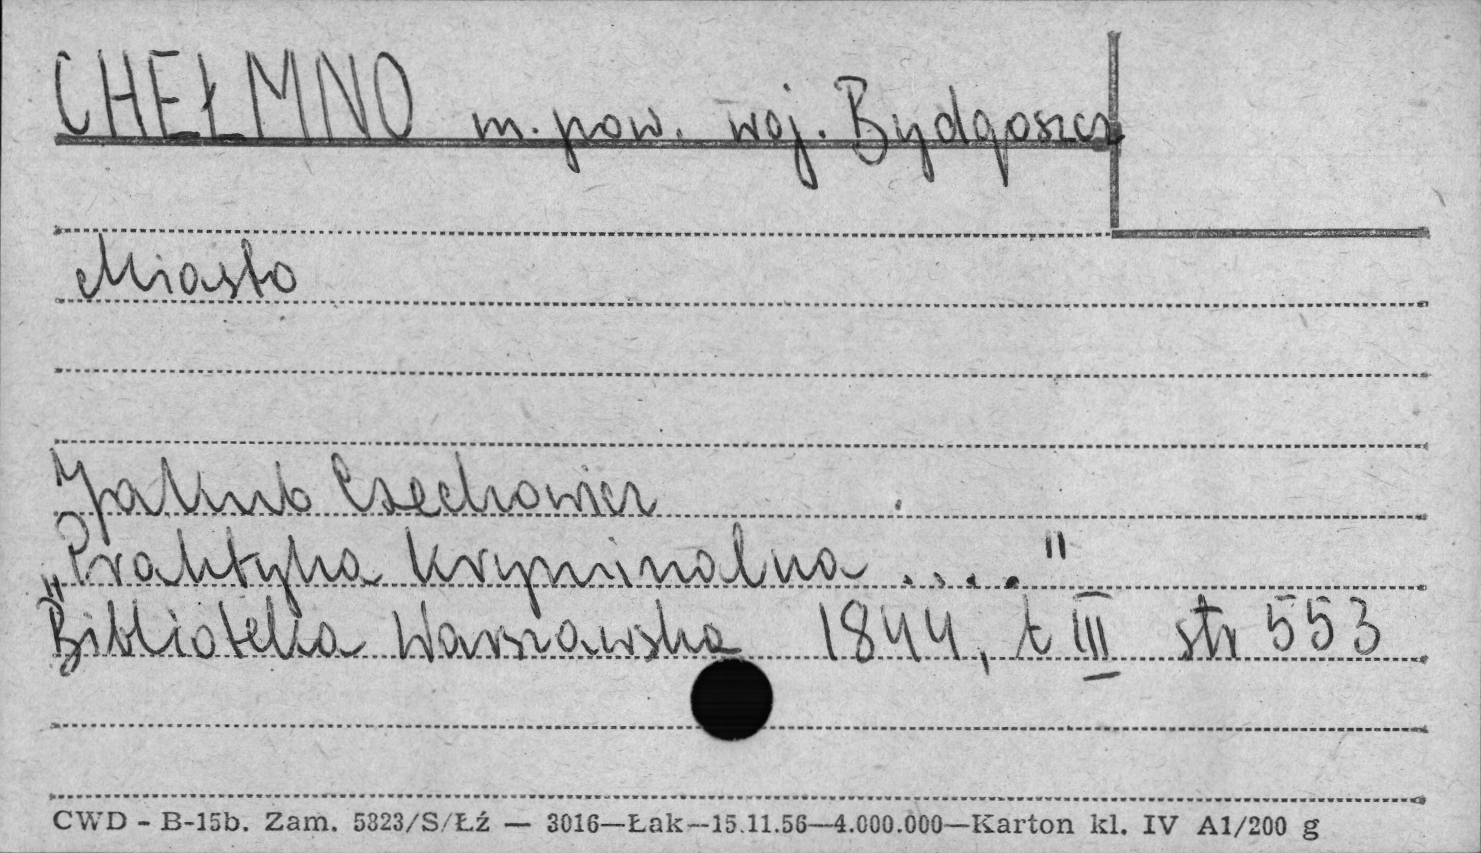 CHEŁMNO m. pow. woj. Bydgoszcz
Miasto
Jakub Czechowicz
"Praktyka kryminalna ...."
Biblioteka Warszawska 1844, t III str 553
CWD - B-15b. Zam. 5323/S/Łź — 3016—Łak—15.11.56—4.000.000—Karton kl. IV A1/200 g